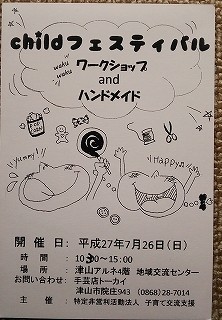 childフェスティバル
waku
waku
ワークショップ
and
ハンドメイド
POP
CORN
yummy!
Happy♪
開催日: 平成27年7月26日(日)
時間: 10:30〜15:00
場所: 津山アルネ4階 地域交流センター
お問い合わせ: 手芸店トーカイ
津山市院庄943 (0868-28-7014)
主催: 特定非営利活動法人 子育て交流支援